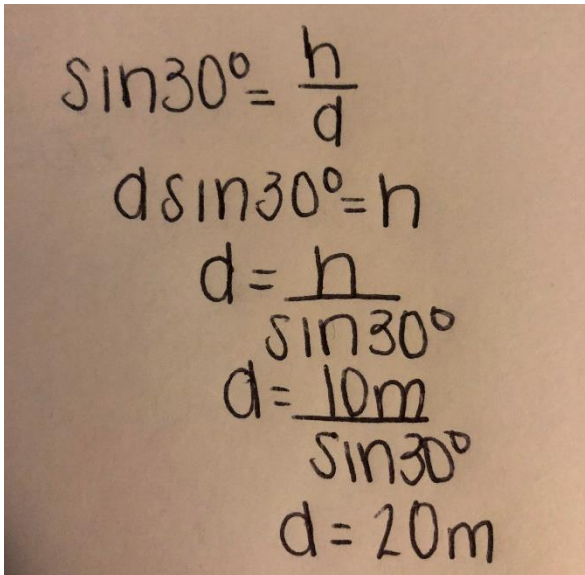 sin30° = h/d
dsin30° = h
d = h/sin30°
d = 10m/sin30°
d = 20m